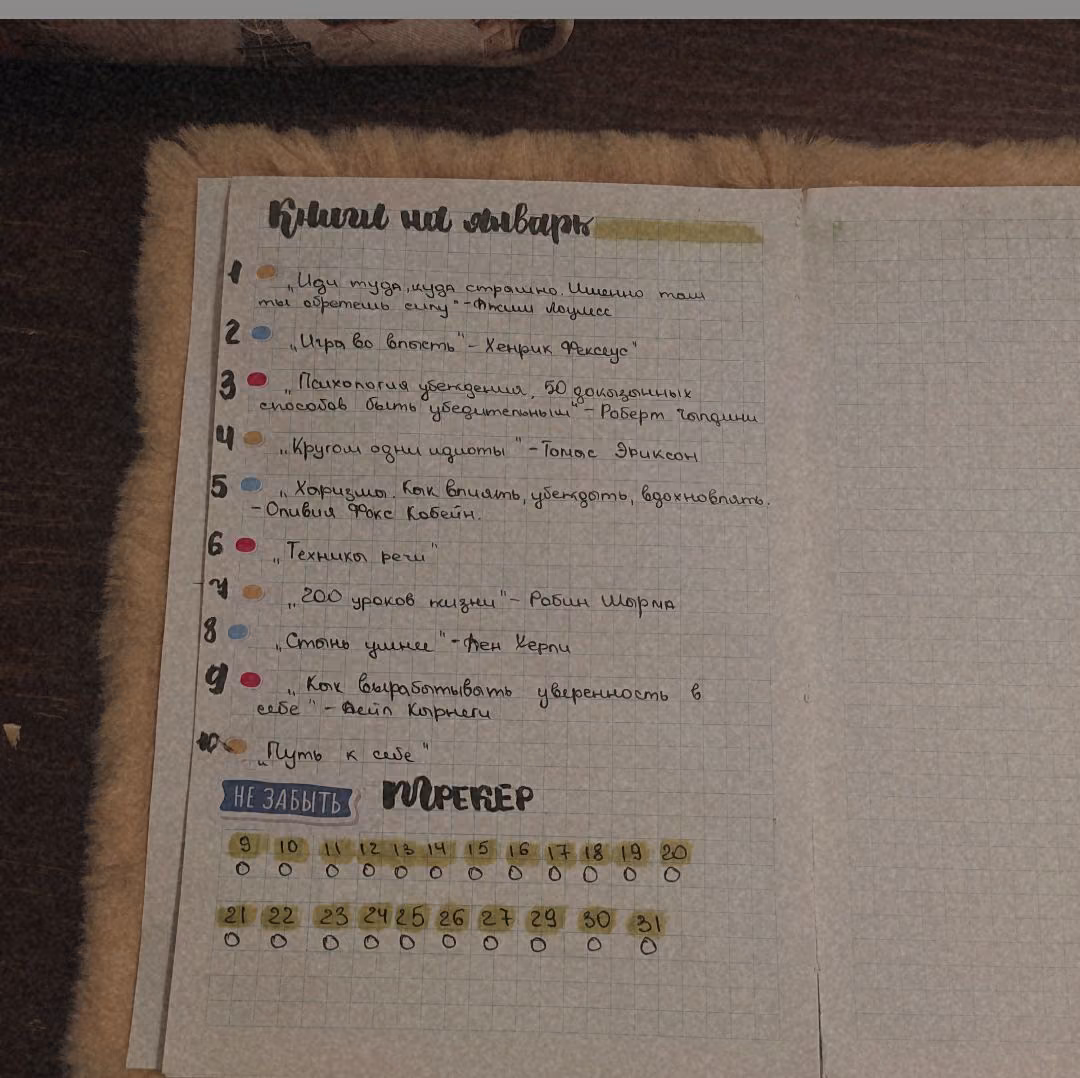 Книги на январь
1 „Иди туда, куда страшно. Именно там
ты обретешь силу" - Джим Лоулесс
2 „Игра во власть" - Хенрик Фексеус"
3 „Психология убеждения, 50 доказанных
способов быть убедительным" - Роберт Чалдини
4 „Кругом одни идиоты" - Томас Эриксон
5 „Харизма. Как влиять, убеждать, вдохновлять.
- Оливия Фокс Кабейн.
6 „Техника речи"
7 „200 уроков жизни" - Робин Шарма
8 „Стань умнее" - Ден Херли
9 „Как вырабатывать уверенность в
себе" - Дейл Карнеги
10 „Путь к себе"
НЕ ЗАБЫТЬ ТРЕКЕР
9 10 11 12 13 14 15 16 17 18 19 20
21 22 23 24 25 26 27 29 30 31